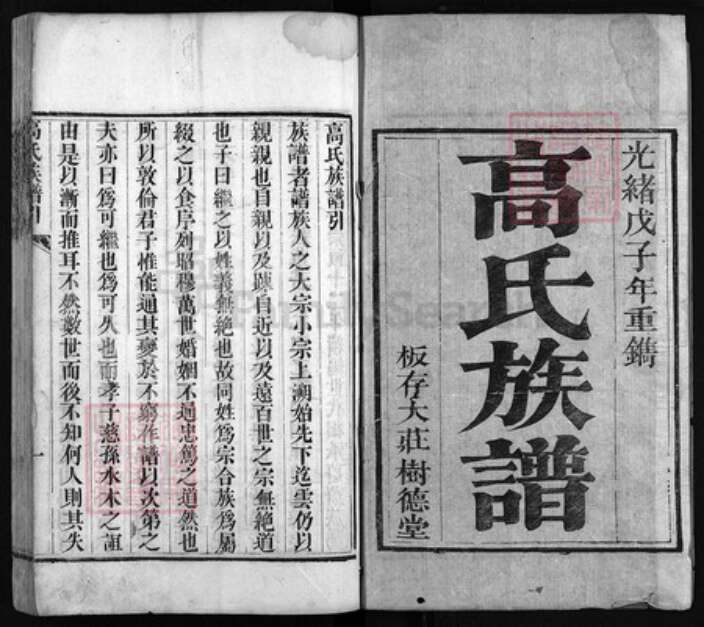 光緒戊子年重鐫
高氏族譜
板存大莊樹德堂
高氏族譜引
族譜者譜族人之大宗小宗上溯始先下迄雲仍以
親親也自親以及疎自近以及遠百世之宗無絶道
也子曰繼之以姓義無絶也故同姓爲宗合族爲屬
綴之以食序列昭穆萬世婚姻不通忠篤之道然也
所以敦倫君子惟能通其變於不窮作譜以次第之
夫亦曰爲可繼也爲可久也而孝子慈孫水木之誼
由是以漸而推耳不然數世而後不知何人則其失
高氏族譜引
一